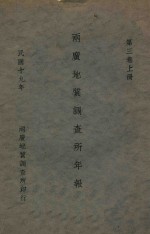 第三卷上冊
兩廣地質調查所年報
民國十九年
兩廣地質調查所印行